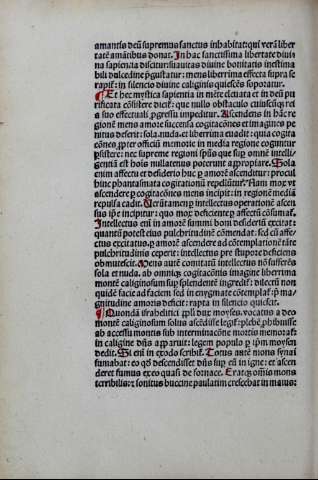 amantis deū supremus sanctus inhabitat: qui verā liber
tatē amātibus donat. In hac sanctissima libertate divi
na sapiencia discitur: suavitas divine bonitatis inestima
bili dulcedine p̄gustatur: mens liberrima effecta supra se
rapit᷑: in silencio divine caliginis quiescēs sopoatur.
Et hec mystica sapientia in mēte elevata et in deū pu
rificata cōsistere dicit᷑: que nullo obstaculo cuiuscūq̄ rei
suo effectuali p̄gressu impeditur. Ascendens in hāc re
gionē mens amore succensa cogitacōnes et imagines pe
nitus deserit: sola. nuda. et liberrima evadit: quia cogita
cōnes ꝓpter officiū memorie in media regione cogunt᷑
ꝑsistere: nec supreme regioni ip̄sius que sup̄ omnē intelli
gentiā est hoīs nullatenus poterunt appropiare. Sola
enim affectu et desiderio huc ꝑ amorē ascenditur: procul
hinc phantasmata cogitationū repellūtur. Nam mox vt
ascendere ꝑ cogitationes mens incipit: in regionē mediā
repulsa cadit. Verūtamen ꝑ intellectus operationē ascē
sus ip̄e incipitur: quo mox deficiente ꝑ affectū cōsūmat᷑.
Intellectus enī in amatē summi boni desideriū excitat:
quantū potest eius pulchritudinē cōmendat: sed cū affe
ctus excitatus. ꝑ amorē ascendere ad cōtemplationē tāte
pulchritudinis experit᷑: intellectus pre stupore deficiens
obmutescit. Meto autē comitatū intellectus nō sufferēs
sola et nuda. ab omniq̄ cogitacōnis imagine liberrima
montē caliginosum sup̄ splendentē ingredit᷑: dilectū non
quidē facie ad faciem sed in enygmate cōtemplat᷑: p̄ ma
gnitudine amoris deficit: rapta in silencio quiescit.
Quondā israhelitici ꝓpli dux moyses. vocatus a deo
montē caliginosum solus ascēdisse legit᷑: plebē ꝓhibuisse
ab accessu montis sub interminacōne mortis memorat᷑:
in caligine dn̄s apparuit: legem populo ꝑ ip̄m moysen
dedit. Si enī in exodo scribit᷑. Totus autē mons synai
fumabat: eo q̄ descendisset dn̄s sup̄ eum in igne: et ascen
deret fumus ex eo quasi de fornace. Eratq̄ om̄is mons
terribilis: et sonitus buccine paulatim crescebat in maius: